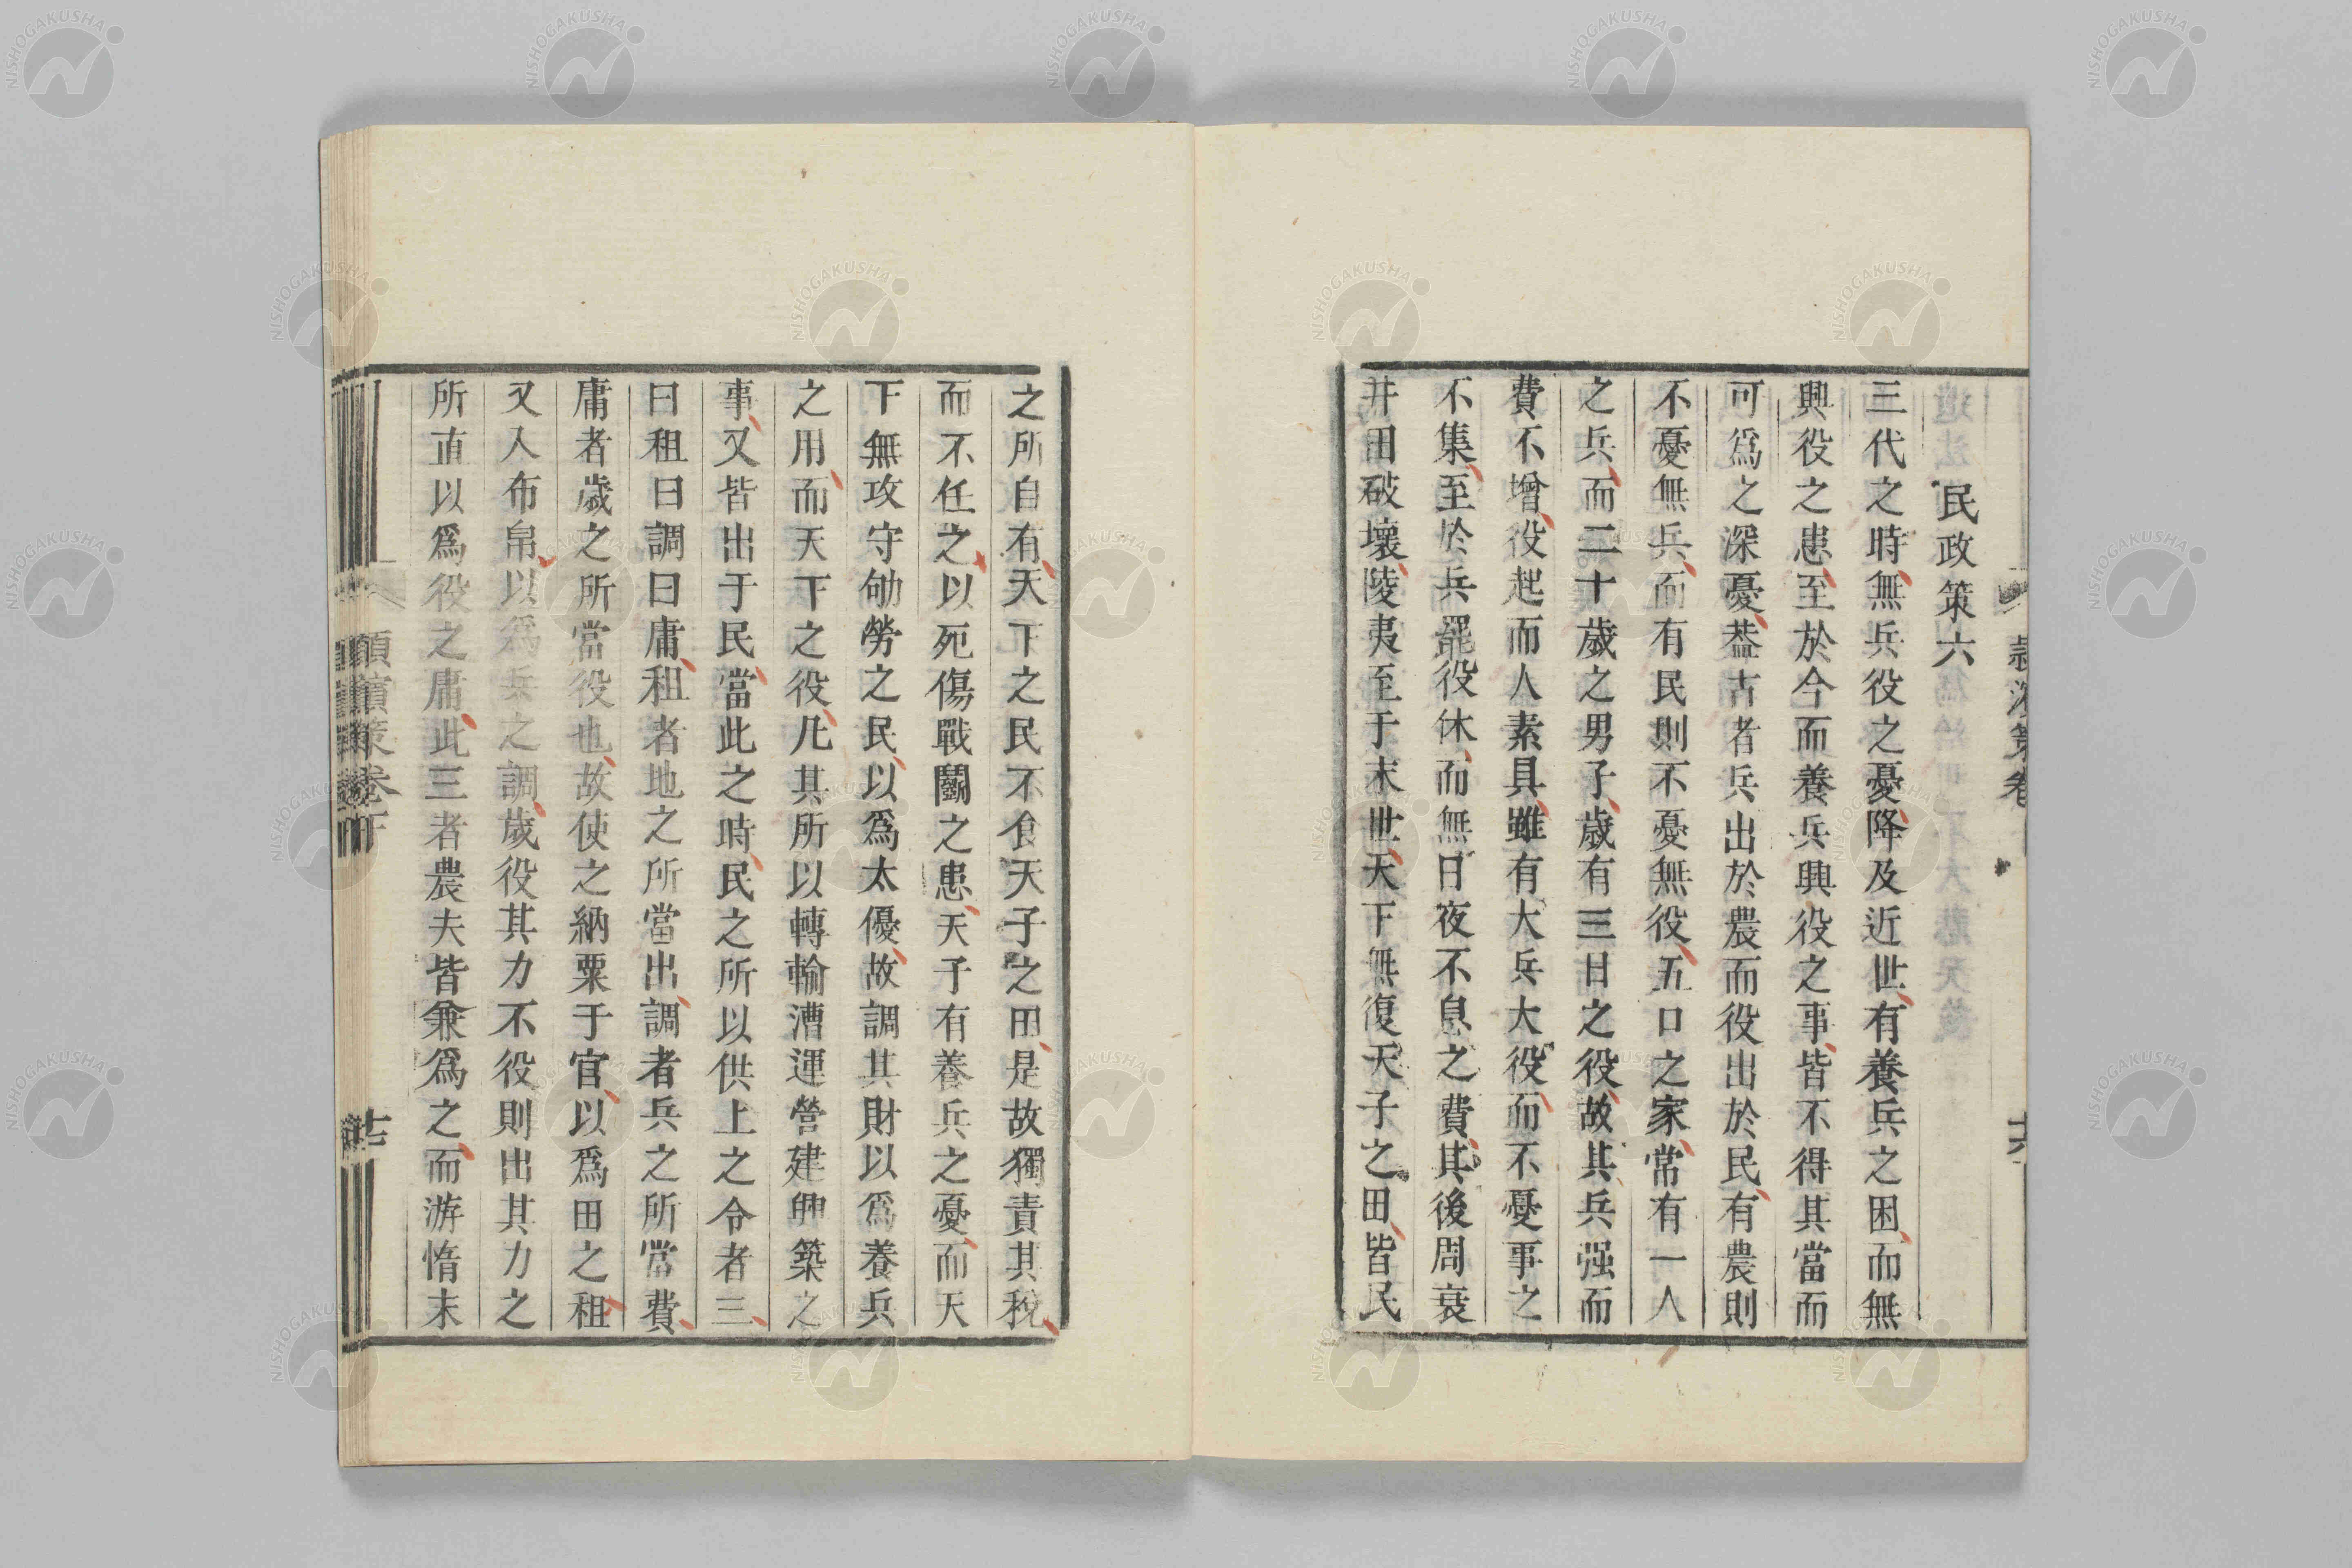 民政策六
三代之時無兵役之憂降及近世有養兵之困而無
興役之患至於今而養兵興役之事皆不得其當而
可爲之深憂葢古者兵出於農而役出於民有農則
不憂無兵而有民則不憂無役五口之家常有一人
之兵而二十歲之男子歲有三日之役故其兵强而
費不增役起而人素具雖有大兵大役而不憂事之
不集至於兵罷役休而無日夜不息之費其後周衰
井田破壞陵夷至于末世天下無復天子之田皆民
之所自有天下之民不食天子之田是故獨責其稅
而不任之以死傷戰鬭之患天子有養兵之憂而天
下無攻守劬勞之民以爲太優故調其財以爲養兵
之用而天下之役凡其所以轉輸漕運營建興築之
事又皆出于民當此之時民之所以供上之令者三
曰租曰調曰庸租者地之所當出調者兵之所當費
庸者歲之所當役也故使之納粟于官以爲田之租
又入布帛以爲兵之調歲役其力不役則出其力之
所直以爲役之庸此三者農夫皆兼爲之而游惰末
潁濱策卷下
十七
NISHOGAKUSHA